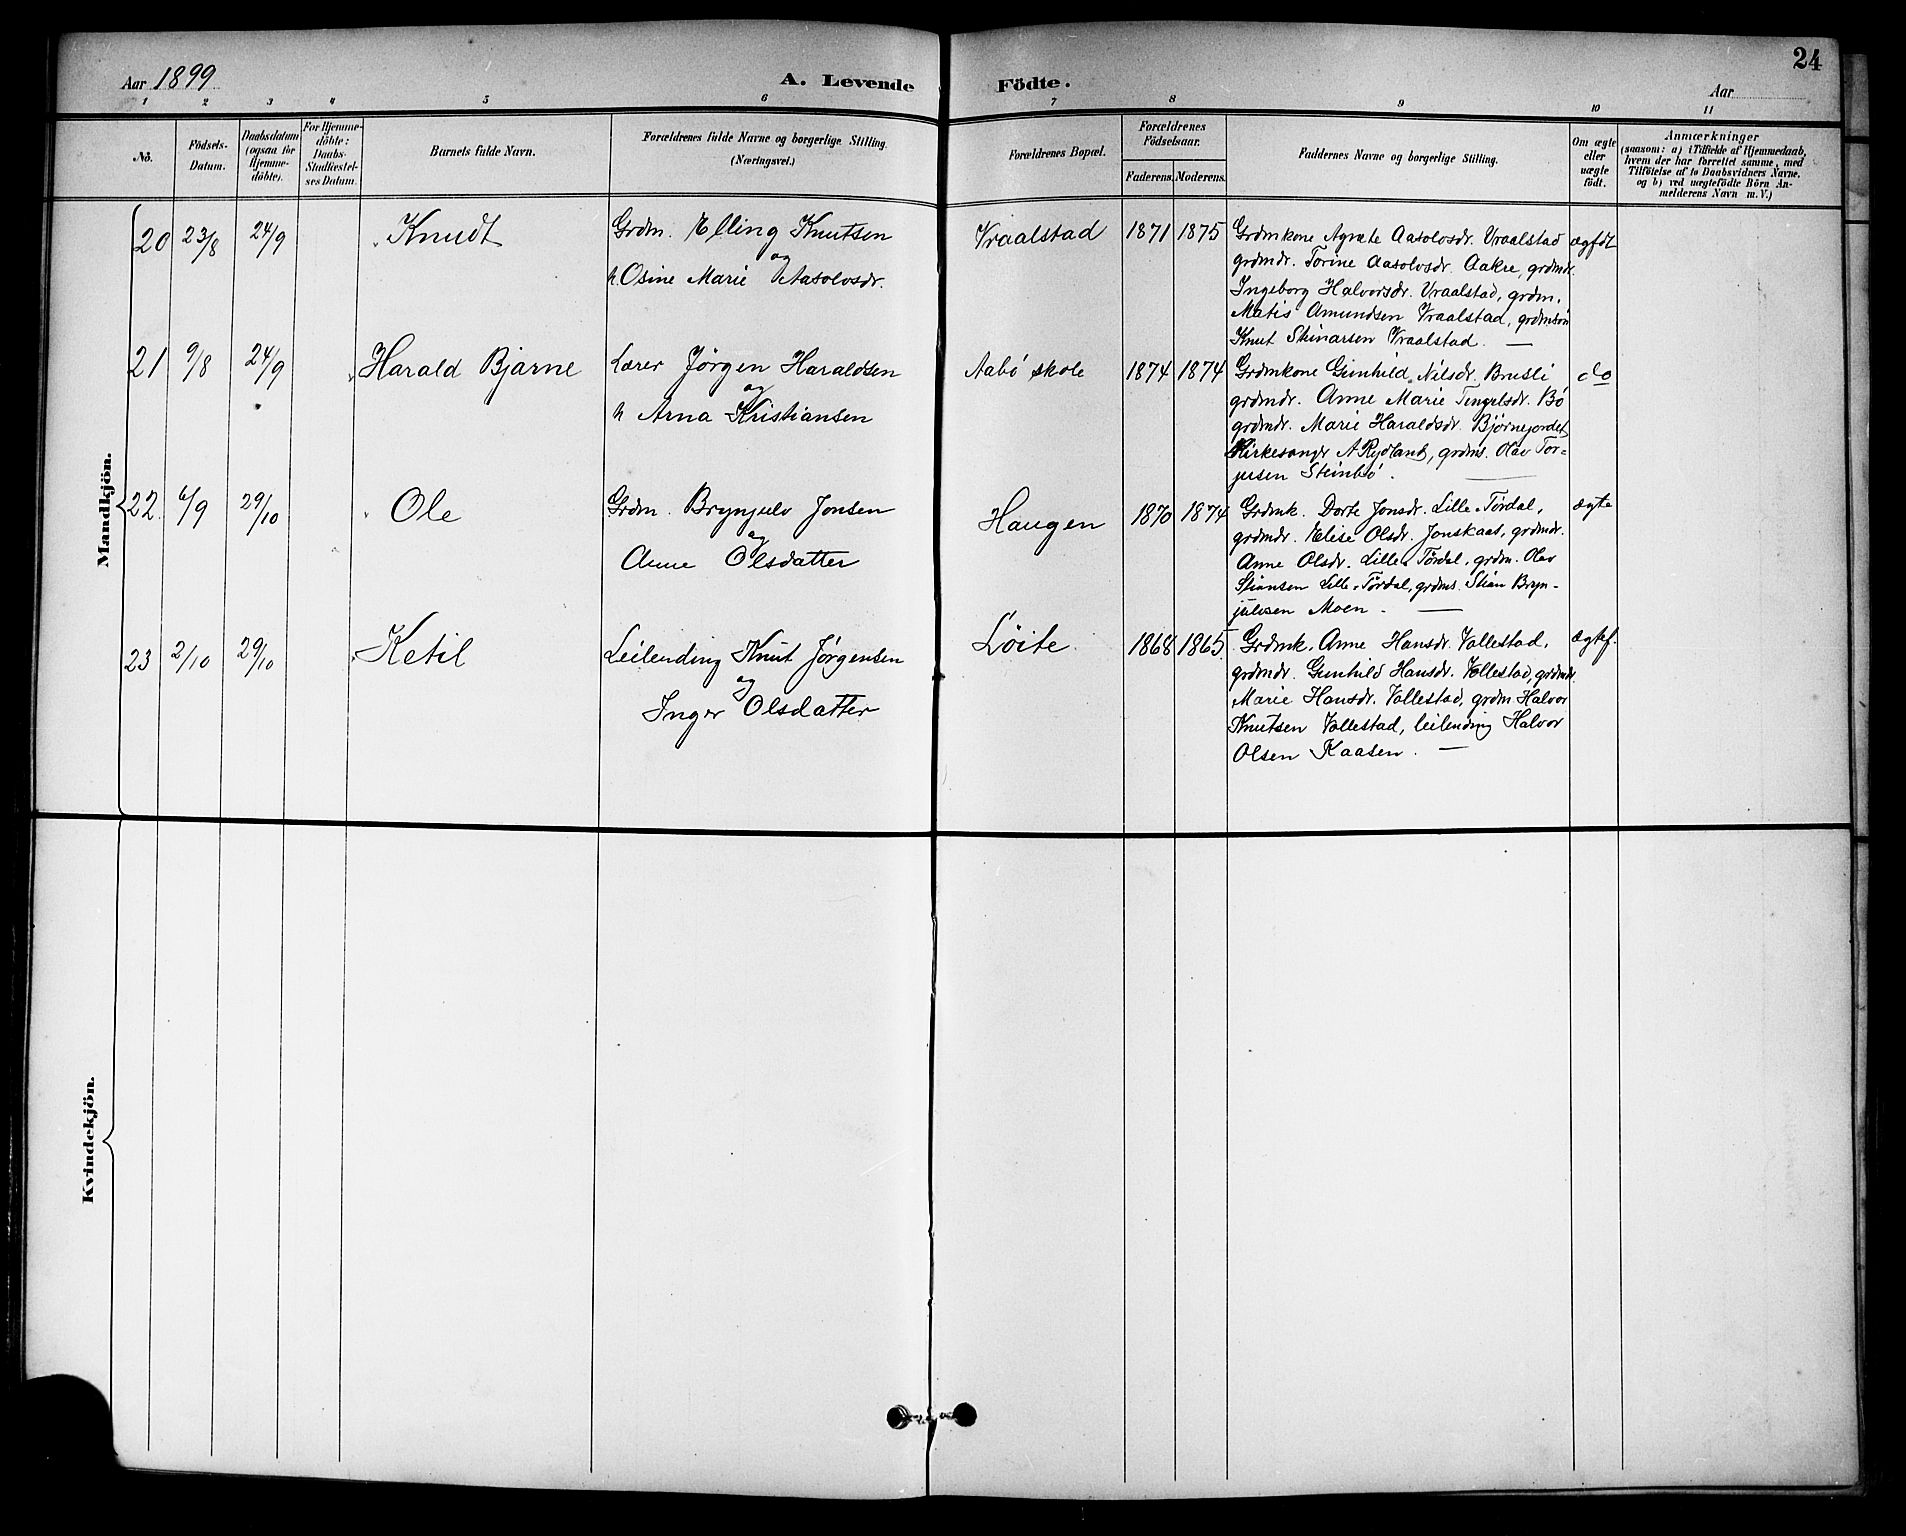 24
Aar 1899
A. Levende Födte.
Aar
1 2 3 4 5 6 7 8 9 10 11
No.
Födsels-Datum.
Daabsdatum (ogsaa for Hjemme-döbte).
For Hjemme-döbte: Daabs-Stadfæstelses Datum.
Barnets fulde Navn.
Forældrenes fulde Navne og borgerlige Stilling. (Næringsvei.)
Forældrenes Bopæl.
Forældrenes Födselsaar.
Faderens. Moderens.
Faddernes Navne og borgerlige Stilling.
Om ægte eller uægte födt.
Anmærkninger
(saasom: a) i Tilfælde af Hjemmedaab, hvem der har forrettet samme, med Tilföielse af to Daabsvidners Navne, og b) ved uægtefödte Börn Anmelderens Navn m. V.)
Mandkjön.
20 23/8 24/9 Knudt
Grdm. Elling Knutsen
og
h. Osine Marie Aasolvsdr.
Vraalstad 1871 1875
Grdmkone Agnete Aasolvsdr. Vraalstad
grdmdr. Torine Aasolvsdr. Aakre, grdmdr.
Ingeborg Halvorsdr. Vraalstad, grdm.
Matis Amundsen Vraalstad, grdmsøn
Knut Steinarsen Vraalstad. —
ægfdt
21 9/8 24/9 Harald Bjarne
Lærer Jørgen Haraldsen
og
h Arna Kristiansen
Aabö skole 1874 1874
Grdmkone Gunhild Nilsdr. Brusli
grdmdr. Anne Marie Tengelsdr. Bö
grdmdr. Marie Haraldsdr. Björnejordet
Kirkesanger A Rydland, grdms. Olav Tor-
jusen Steinbö. —
do
22. 6/9 29/10 Ole
Grdm. Brynjulv Jonsen
og
Anne Olsdatter
Haugen 1870 1874
Grdmk. Dorte Jonsdr. Lille-Tördal,
grdmdr. Elise Olsdr. Jonskaas, grdmdr.
Anne Olsdr. Lille-Tördal, grdm. Olav
Stiansen Lille-Tördal, grdms. Stian Bryn-
julvsen Moen. —
ægte
23 2/10 29/10 Ketil
Leilending Knut Jørgensen
og
Inger Olsdatter
Löite 1868 1865
Grdmk. Anne Hansdr. Vallestad,
grdmdr. Gunhild Hansdr. Vallestad, grdmdr.
Marie Hansdr. Vallestad, grdm Halvor
Knutsen Vallestad, leilending Halvor
Olsen Kaasen. —
ægtef.
Kvindekjön.